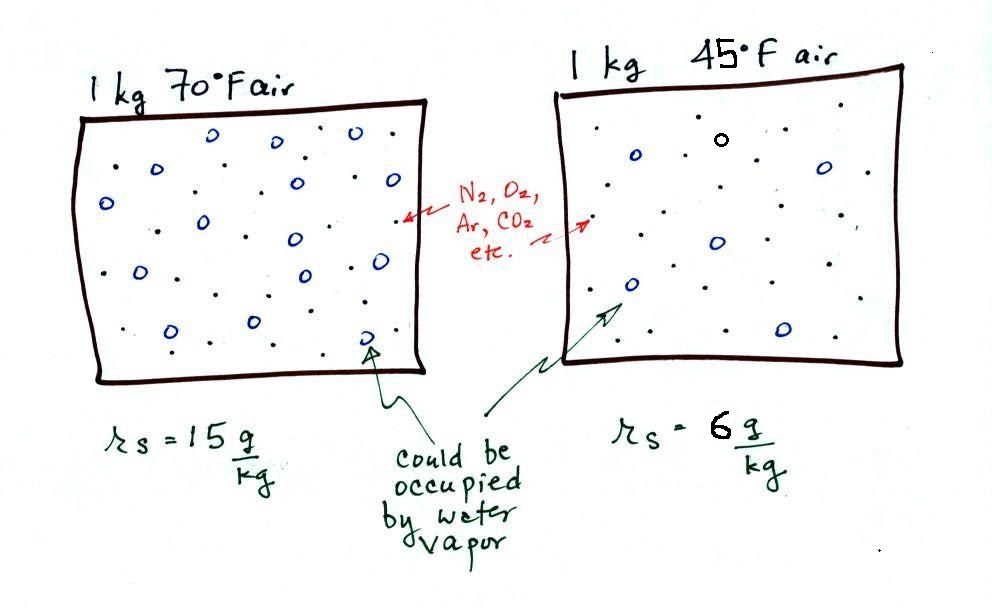 1 kg 70°F air
1 kg 45°F air
N2, O2,
Ar, CO2
etc.
rs = 15 g/kg
rs = 6 g/kg
could be
occupied
by water
vapor